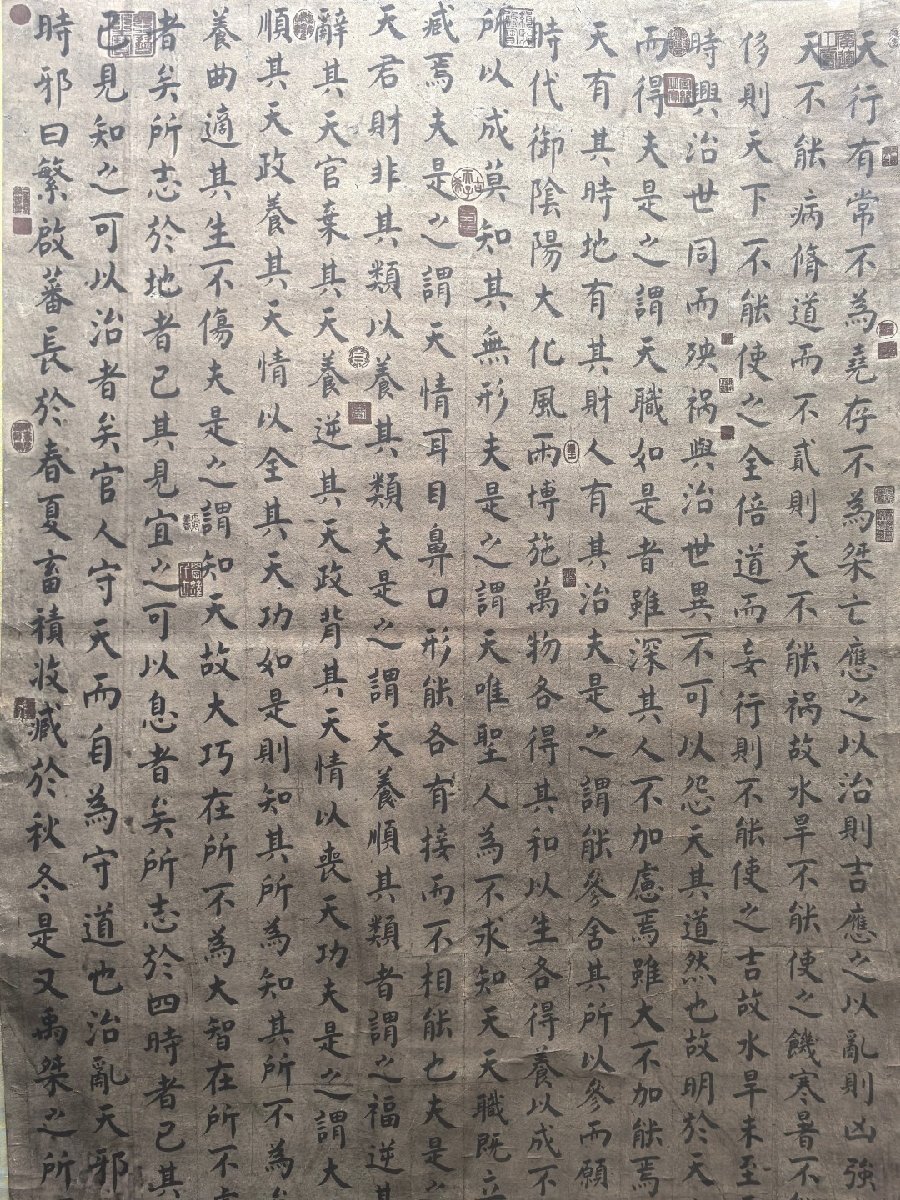 天行有常不為堯存不為桀亡應之以治則吉應之以亂則凶強
天不能病脩道而不貳則天不能禍故水旱不能使之饑寒暑不
侈則天下不能使之全倍道而妄行則不能使之吉故水旱未至
時興治世同而殃祸與治世異不可以怨天其道然也故明於天
而得夫是之謂天職如是者雖深其人不加慮焉雖大不加能焉
天有其時地有其財人有其治夫是之謂能參舍其所以參而願
時代御陰陽大化風雨博施萬物各得其和以生各得養以成不
所以成莫知其無形夫是之謂天唯聖人為不求知天天職既立
臧焉夫是之謂天情耳目鼻口形能各有接而不相能也夫是之
天君財非其類以養其類夫是之謂天養順其類者謂之福逆其
辭其天官棄其天養逆其天政背其天情以喪天功夫是之謂大
順其天政養其天情以全其天功如是則知其所為知其所不為
養曲適其生不傷夫是之謂知天故大巧在所不為大智在所不
者矣所志於地者已其見宜之可以息者矣所志於四時者已其
已見知之可以治者矣官人守天而自為守道也治亂天邪
時邪曰繁啟蕃長於春夏畜積收臧於秋冬是又禹桀之所